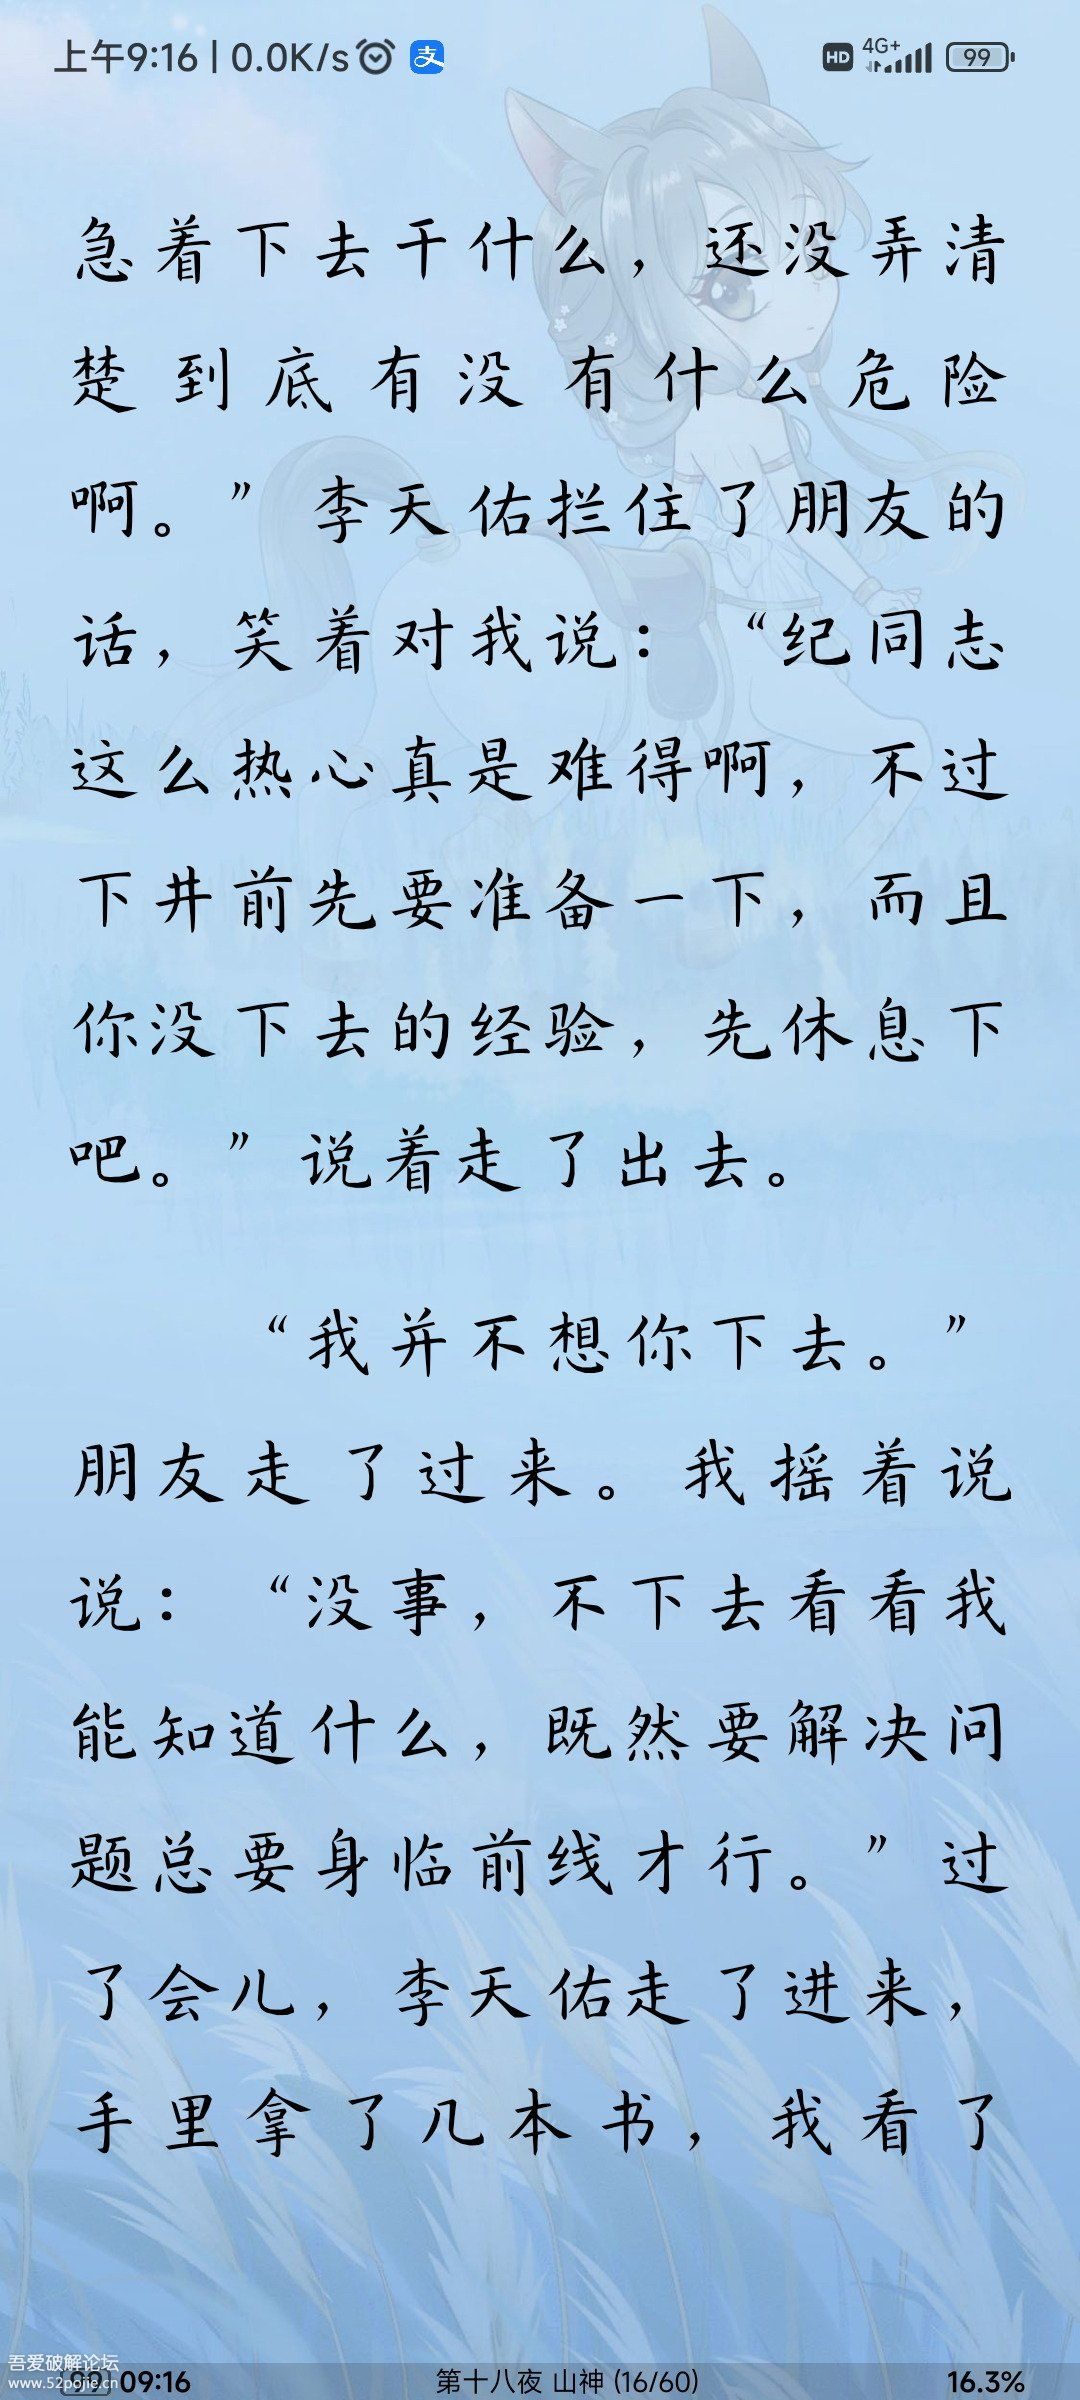 上午9:16 | 0.0K/s 支
HD 4G+ 99
急着下去干什么，还没弄清
楚到底有没有什么危险
啊。”李天佑拦住了朋友的
话，笑着对我说：“纪同志
这么热心真是难得啊，不过
下井前先要准备一下，而且
你没下去的经验，先休息下
吧。”说着走了出去。
“我并不想你下去。”
朋友走了过来。我摇着说
说：“没事，不下去看看我
能知道什么，既然要解决问
题总要身临前线才行。”过
了会儿，李天佑走了进来，
手里拿了几本书，我看了
吾爱破解论坛
www.52pojie.cn
99 09:16 第十八夜 山神 (16/60) 16.3%